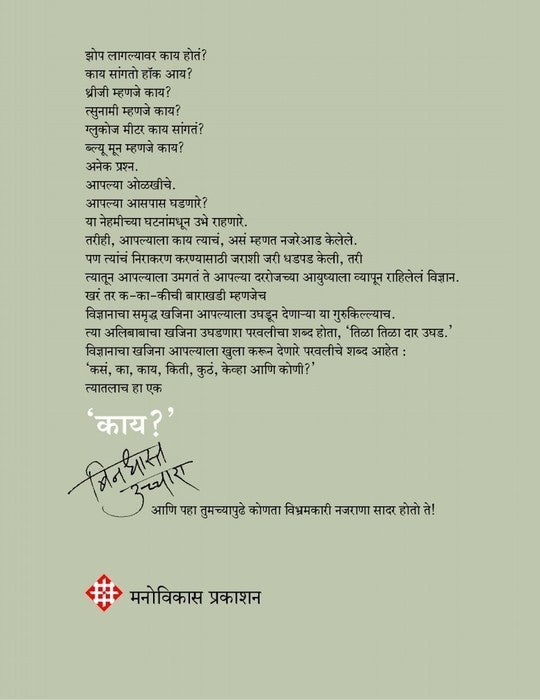 झोप लागल्यावर काय होतं?
काय सांगतो हॉक आय?
थ्रीजी म्हणजे काय?
त्सुनामी म्हणजे काय?
ग्लुकोज मीटर काय सांगतं?
ब्ल्यू मून म्हणजे काय?
अनेक प्रश्न.
आपल्या ओळखीचे.
आपल्या आसपास घडणारे?
या नेहमीच्या घटनांमधून उभे राहणारे.
तरीही, आपल्याला काय त्याचं, असं म्हणत नजरेआड केलेले.
पण त्यांचं निराकरण करण्यासाठी जराशी जरी धडपड केली, तरी
त्यातून आपल्याला उमगतं ते आपल्या दररोजच्या आयुष्याला व्यापून राहिलेलं विज्ञान.
खरं तर क-का-कीची बाराखडी म्हणजेच
विज्ञानाचा समृद्ध खजिना आपल्याला उघडून देणाऱ्या या गुरुकिल्ल्याच.
त्या अलिबाबाचा खजिना उघडणारा परवलीचा शब्द होता, ‘तिळा तिळा दार उघड.’
विज्ञानाचा खजिना आपल्याला खुला करून देणारे परवलीचे शब्द आहेत :
‘कसं, का, काय, किती, कुठं, केव्हा आणि कोणी?’
त्यातलाच हा एक
‘काय?’
बिनधास्त
उच्चारा
आणि पहा तुमच्यापुढे कोणता विभ्रमकारी नजराणा सादर होतो ते!
मनोविकास प्रकाशन